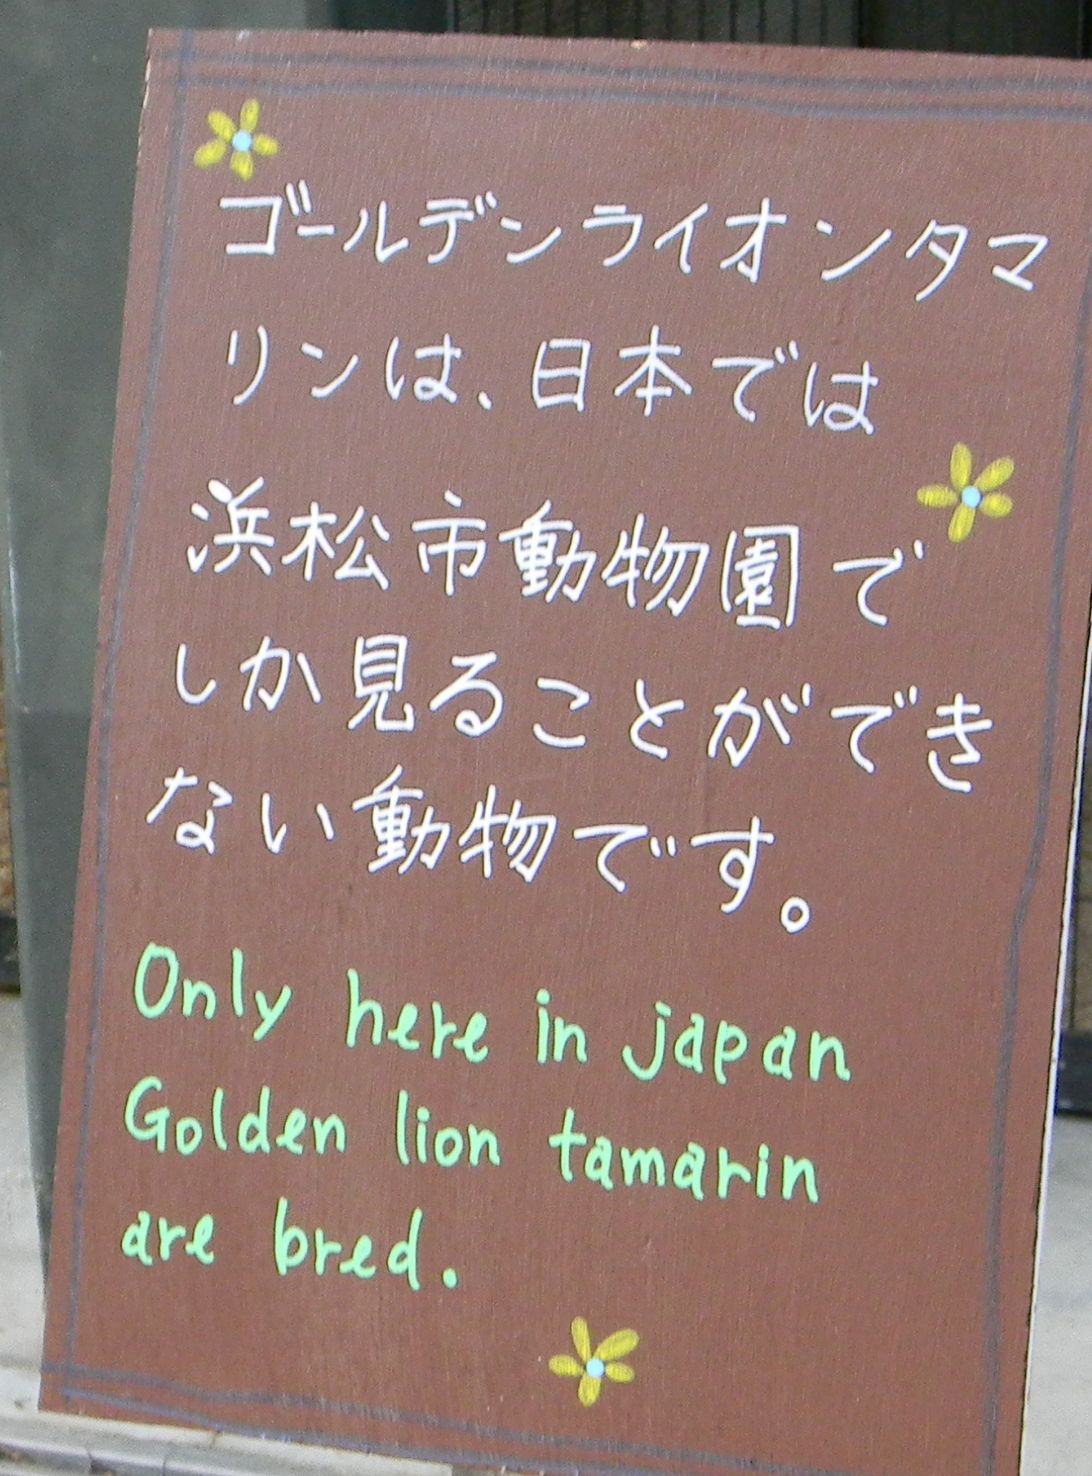 ゴールデンライオンタマ
リンは、日本では
浜松市動物園で
しか見ることができ
ない動物です。
Only here in japan
Golden lion tamarin
are bred.